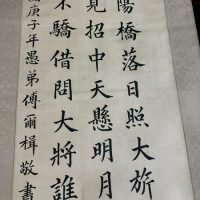 陽橋落日照大旂
見招中天懸明月
不驕借問大將誰
庚子年愚弟傅爾楫敬書